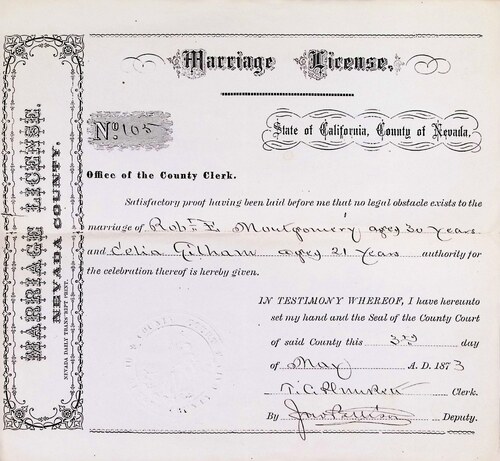 Marriage License.
MARRIAGE LICENSE.
NEVADA COUNTY.
NEVADA DAILY TRANSCRIPT PRINT.
No 105
State of California, County of Nevada.
Office of the County Clerk.
Satisfactory proof having been laid before me that no legal obstacle exists to the
marriage of Robt E Montgomery aged 30 years
and Celia Gilham aged 21 years authority for
the celebration thereof is hereby given.
IN TESTIMONY WHEREOF, I have hereunto
set my hand and the Seal of the County Court
of said County this 3rd day
of May A. D. 1873
T. C. Clerk.
By Deputy.